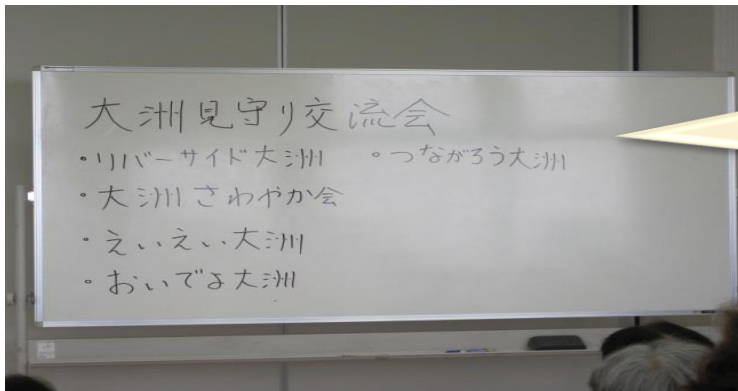 大洲見守り交流会
・リバーサイド大洲　・つながろう大洲
・大洲さわやか会
・えいえい大洲
・おいでよ大洲